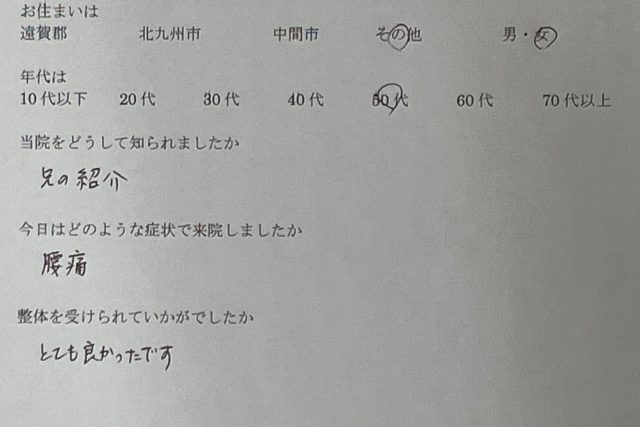 お住まいは
遠賀郡 北九州市 中間市 その他 男・女
年代は
10代以下 20代 30代 40代 50代 60代 70代以上
当院をどうして知られましたか
兄の紹介
今日はどのような症状で来院しましたか
腰痛
整体を受けられていかがでしたか
とても良かったです